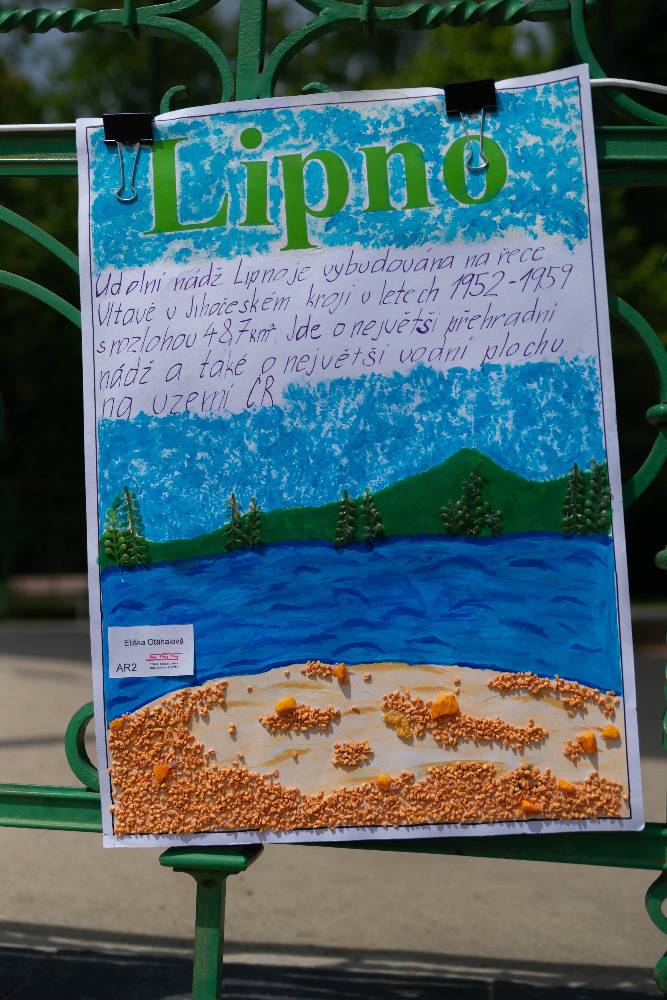 Lipno
Udolní nádž Lipno je vybudována na řece
Vltavě v Jihočeském kraji v letech 1952-1959
s rozlohou 48,7 km². Jde o největší přehradní
nádž a také o největší vodní plochu
na uzemí ČR
Eliška Otáhalová
AR2